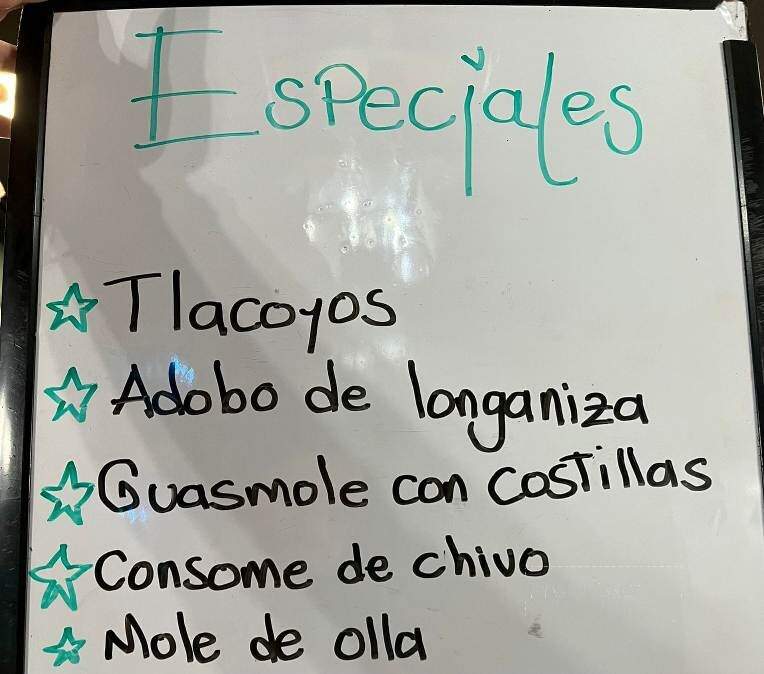 Especiales
Tlacoyos
Adobo de longaniza
Guasmole con costillas
Consome de chivo
Mole de olla